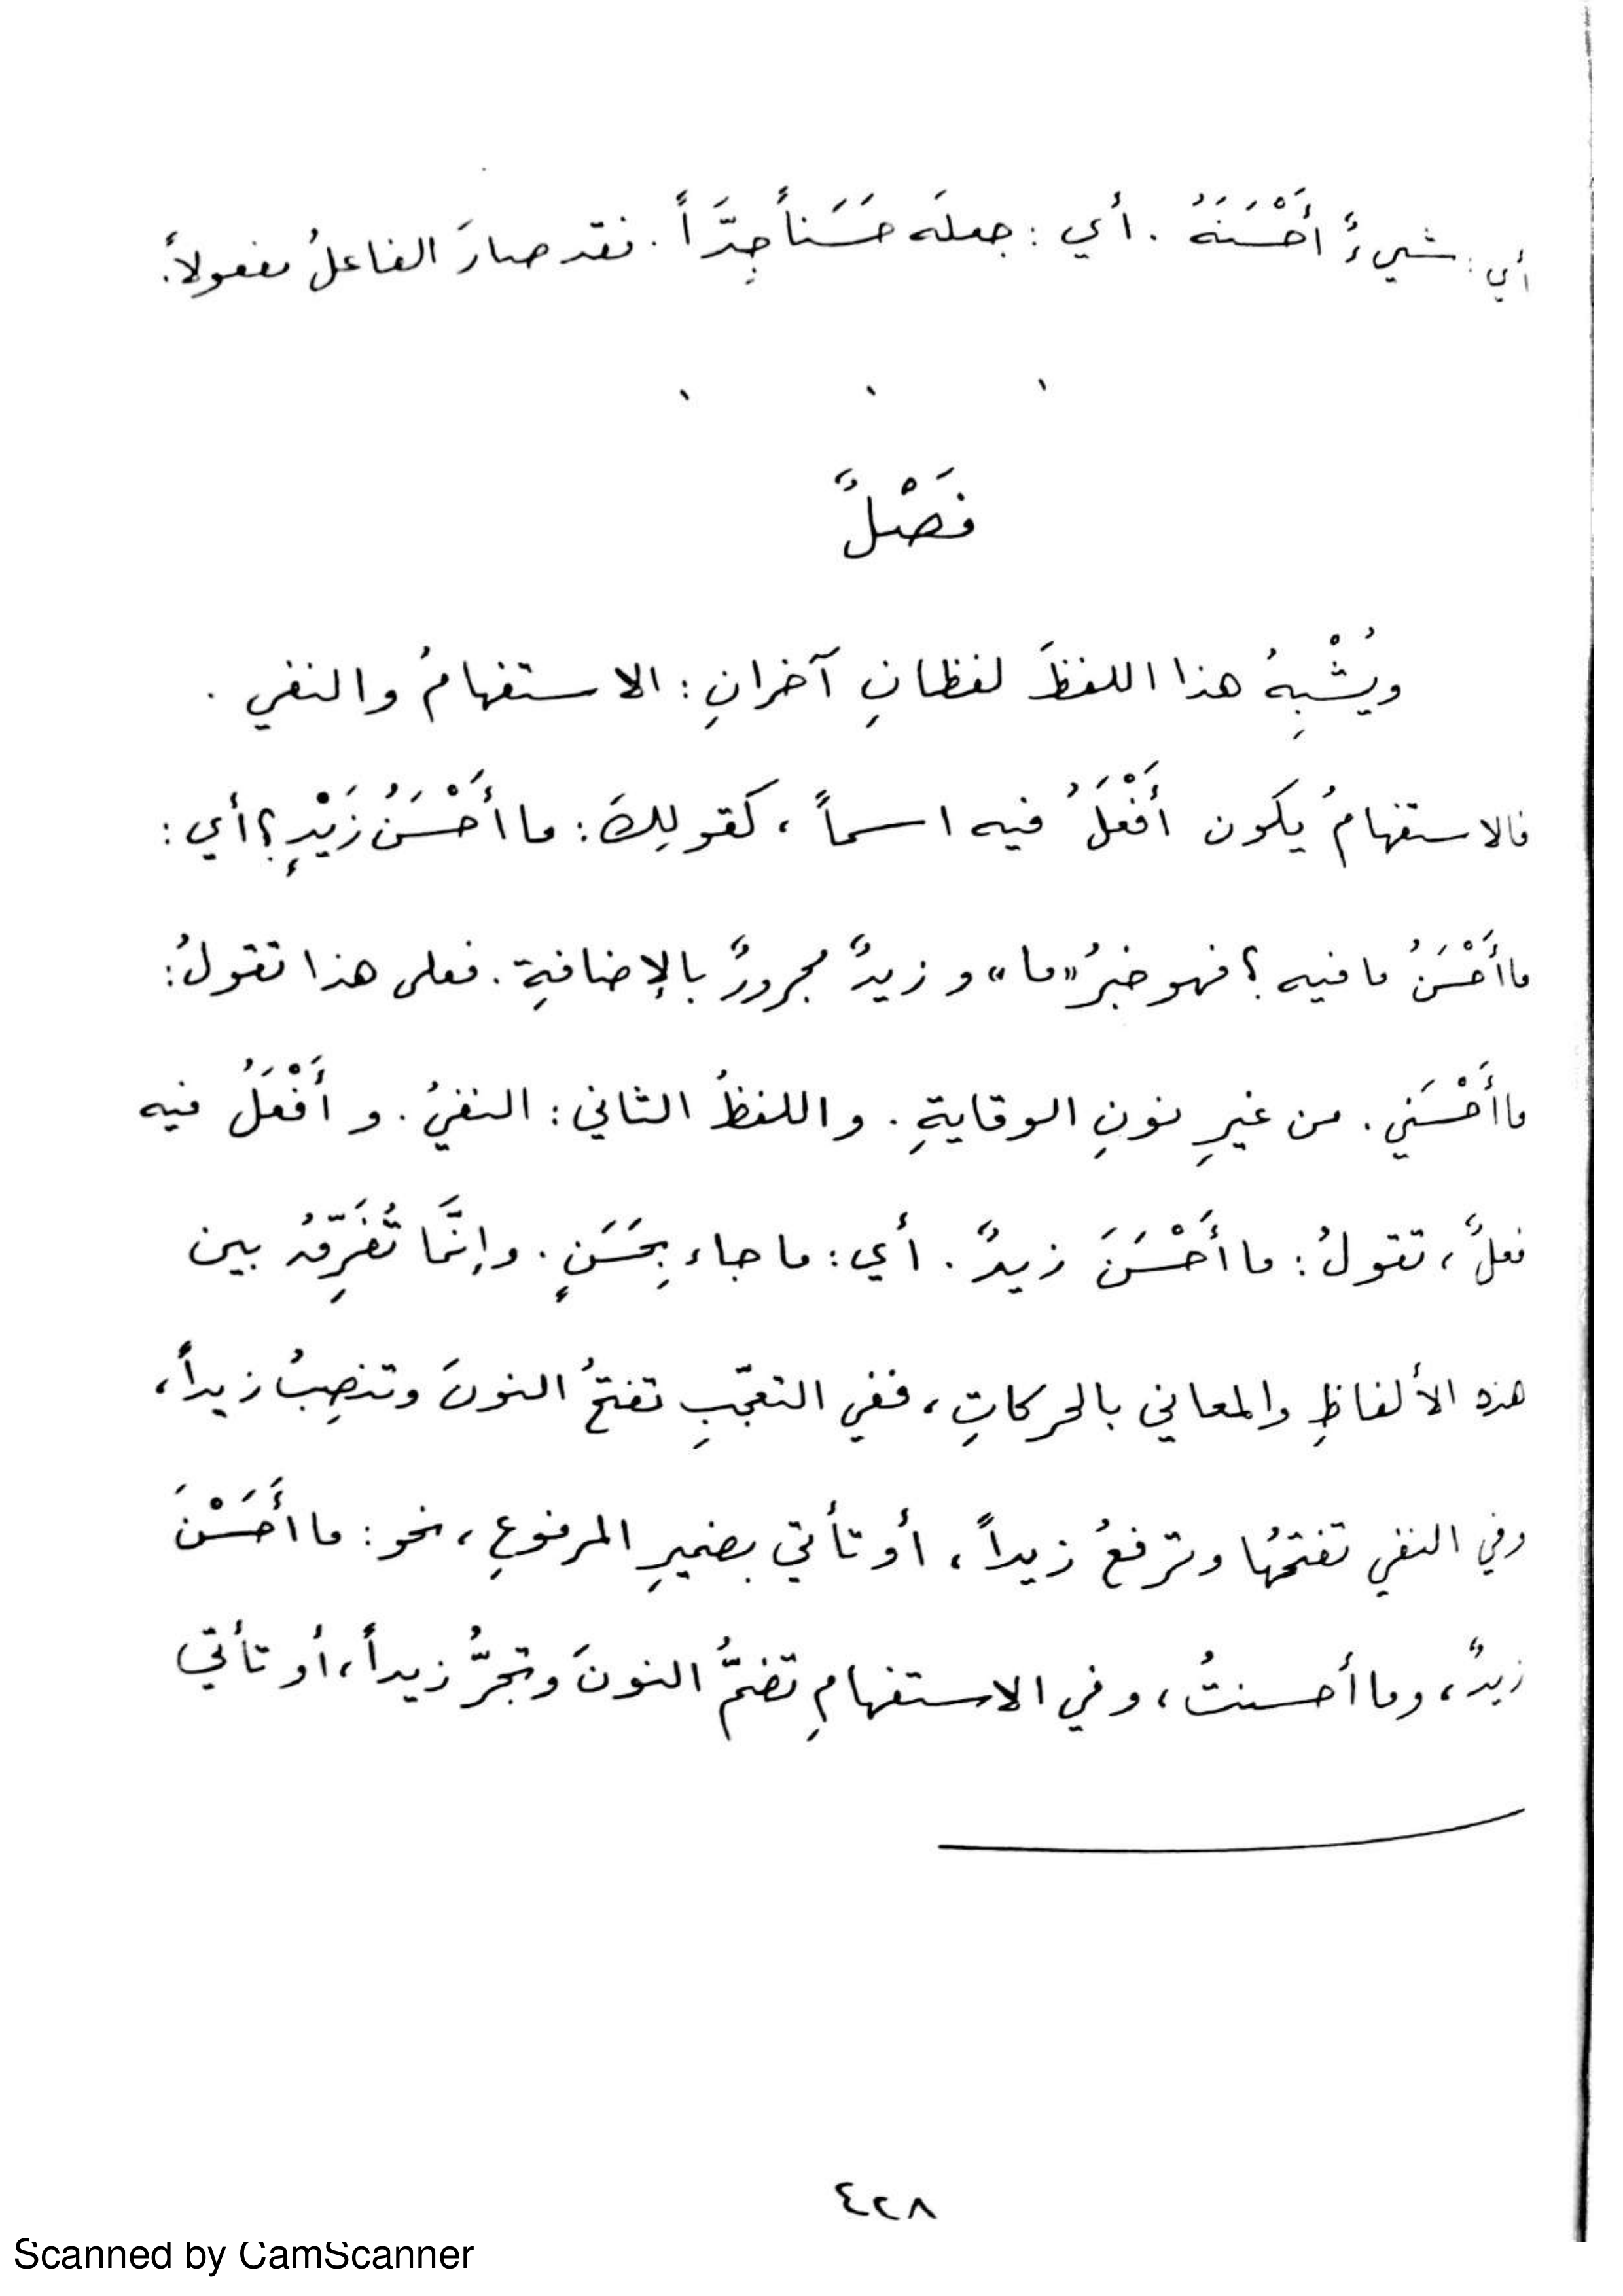 أي: شيءٌ أَحْسَنَهُ. أي: جعلَه حَسَناً جِدَّاً. فقد صارَ الفاعلُ مفعولاً.
فَصْلٌ
ويُشْبِهُ هذا اللفظَ لفظانِ آخرانِ: الاستفهامُ والنفي.
فالاستفهامُ يكون أَفْعَلُ فيه اسماً، كقولِكَ: ما أَحْسَنُ زَيْدٍ؟ أي:
ما أَحْسَنُ ما فيه؟ فهو خبرُ «ما» و زيدٌ مجرورٌ بالإضافةِ. فعلى هذا تقولُ:
ما أَحْسَني. من غيرِ نونِ الوقايةِ. واللفظُ الثاني: النفيُ. و أَفْعَلُ فيه
فعلٌ، تقولُ: ما أَحْسَنَ زيدٌ. أي: ما جاء بِحَسَنٍ. وإنَّما تُفَرِّقُ بين
هذه الألفاظِ والمعاني بالحركاتِ، ففي التعجّبِ تفتحُ النونَ وتنصِبُ زيداً،
وفي النفي تفتحُها وترفعُ زيداً، أو تأتي بضميرِ المرفوعِ، نحو: ما أَحَسْنَ
زيدٌ، وما أحسنتُ، وفي الاستفهامِ تضمُّ النونَ وتجرُّ زيداً، أو تأتي
٤٢٨
Scanned by CamScanner